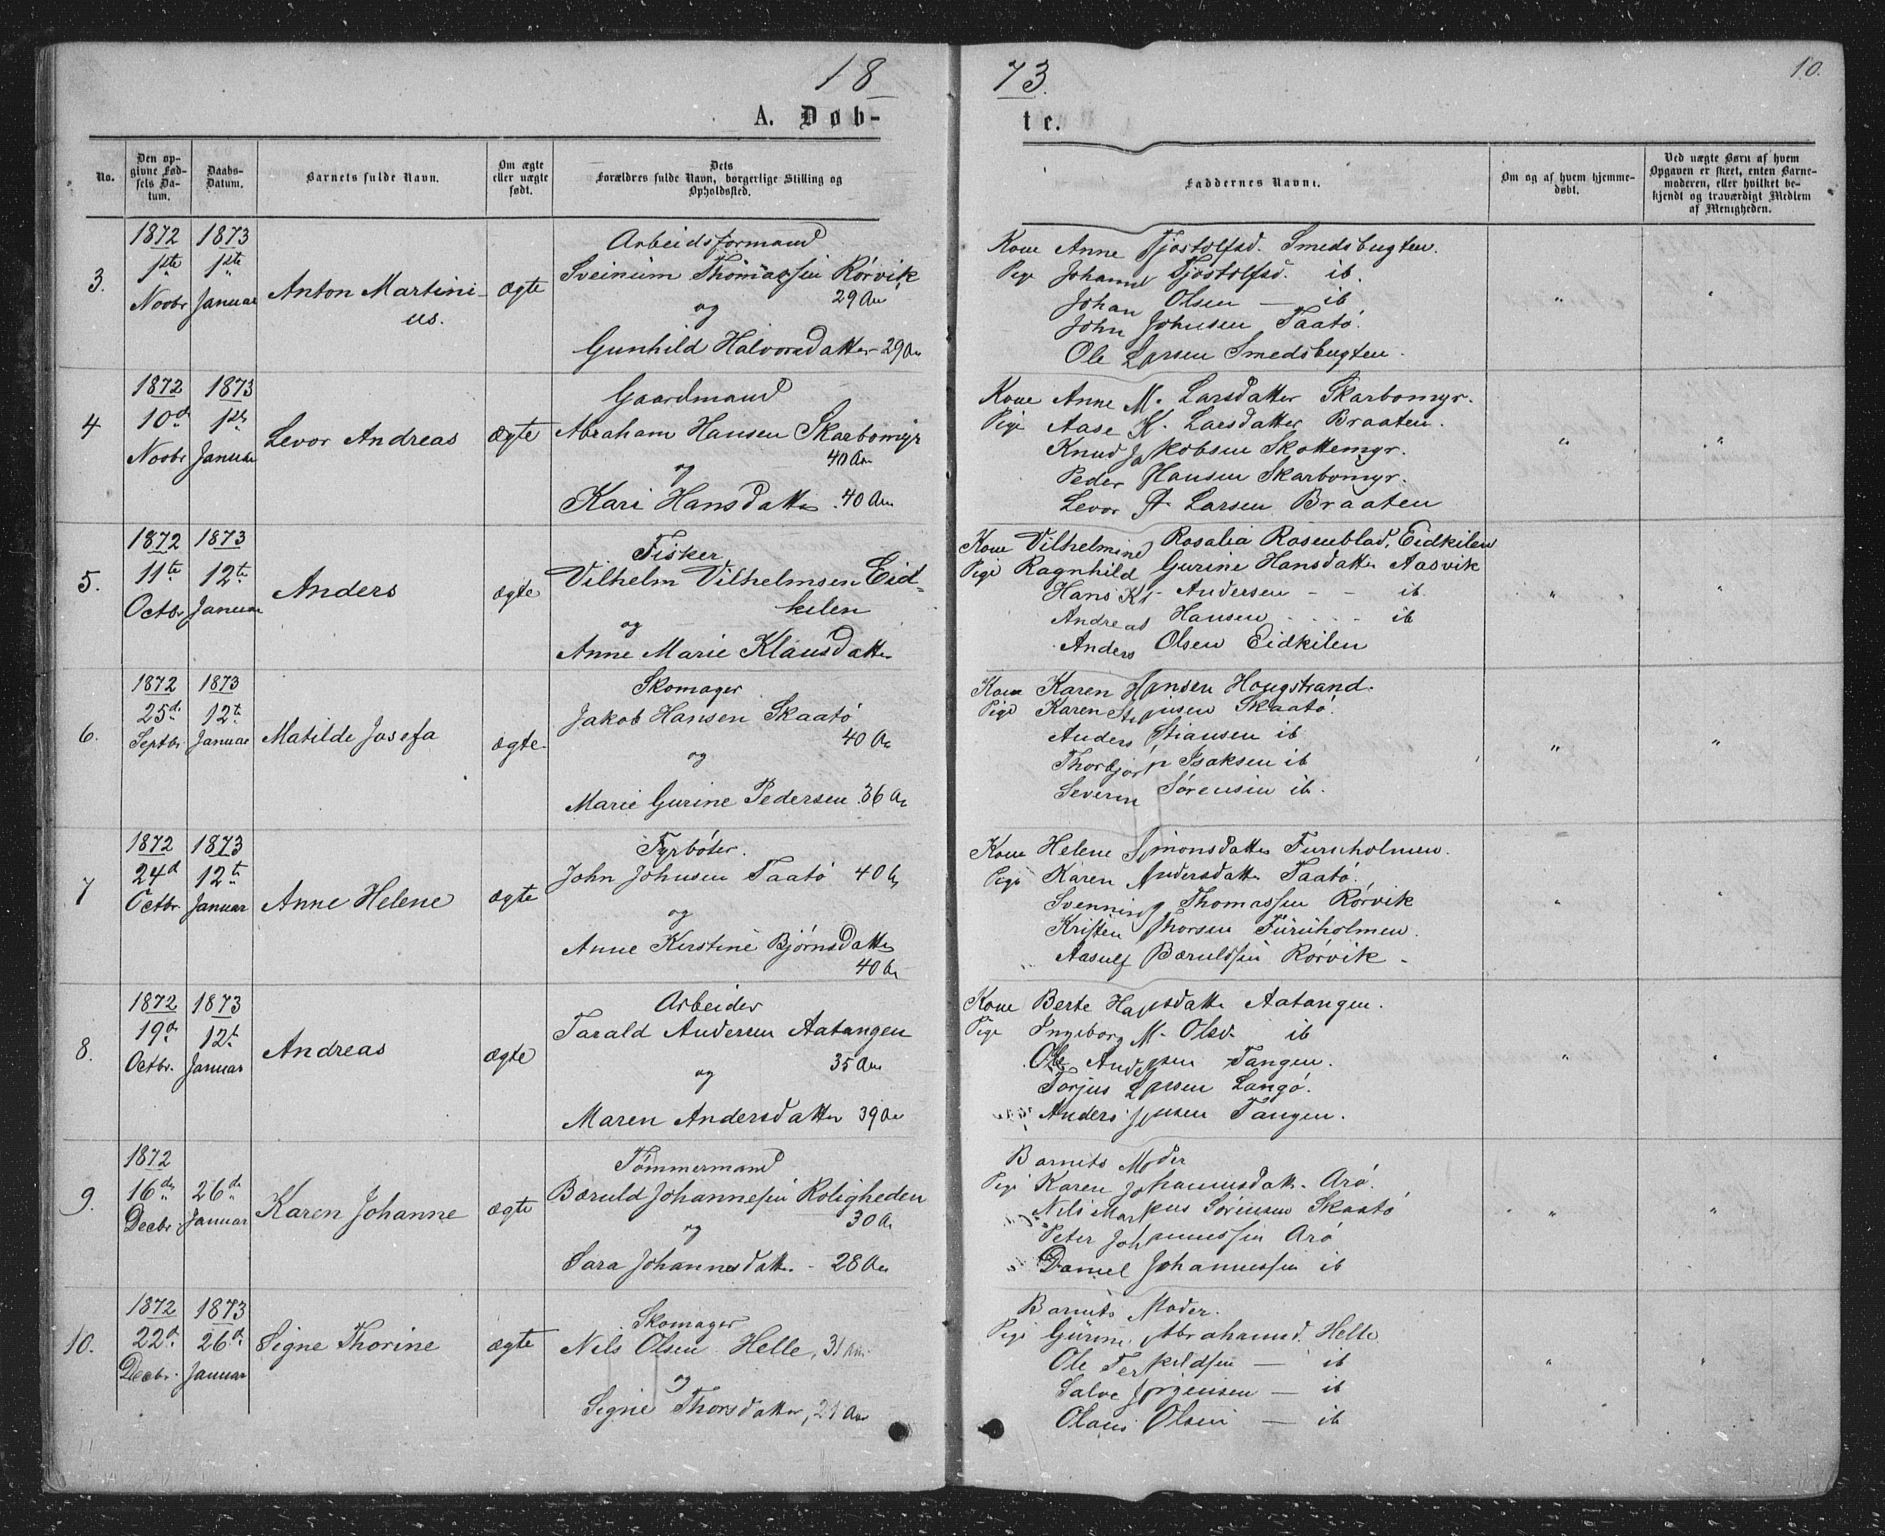 18
73.
10.
A. Døb-
te.
No.
Den op-
givne Fød-
sels Da-
tum.
Daabs-
Datum.
Barnets fulde Navn.
Om ægte
eller uægte
født.
Dets
Forældres fulde Navn, borgerlige Stilling og
Opholdssted.
Faddernes Navne.
Om og af hvem hjemme-
døbt.
Ved uægte Børn af hvem
Opgaven er skeet, enten Barne-
moderen, eller hvilket be-
kjendt og troværdigt Medlem
af Menigheden.
3.
1872
1ste
Novbr
1873
1ste
Januar
Anton Martini-
us.
ægte
Arbeidsformand
Sveinüm Thomassen Rörvik
29 Aar
og
Gunhild Halvorsdatter 29 Aar
Kone Anne Tjostolfsd. Smedsbugten.
Pige Johanne Tjostolfsd. ib.
Johan Olsen — ib
John Johnsen Taatö.
Ole Larsen Smedsbugten.
4
1872
10d
Novbr
1873
1ste
Januar
Levor Andreas
ægte
Gaardmand
Abraham Hansen Skarbomyr
40 Aar
og
Kari Hansdatter. 40 Aar
Kone Anne M. Larsdatter Skarbomyr.
Pige Aase K. Larsdatter Braaten.
Knud Jakobsen Skottemyr.
Peder Hansen Skarbomyr.
Levor A. Larsen Braaten
5.
1872
11te
Octbr
1873
12te
Januar
Anders
ægte
Fisker
Vilhelm Vilhelmsen Eid-
kilen
og
Anne Marie Klausdatter
Kone Vilhelmine Rosalia Rosenblad, Eidkilen
Pige Ragnhild Gurine Hansdatter Aasvik
Hans Kr. Andersen - - ib
Andreas Hansen - - - ib
Anders Olsen Eidkilen
6.
1872
25de
Septbr
1873
12te
Januar
Matilde Josefa
ægte.
Skomager
Jakob Hansen Skaatö
40 Aar
og
Marie Gurine Pedersen. 36 Aar
Kone Karen Hansen Hougstrand.
Pige Karen Skaatö
Anders Stiansen ib
Thorbjørn Isaksen ib
Severin Sörensen ib.
7
1872
24d
Octbr.
1873
12te
Januar
Anne Helene
ægte
Fyrböter.
John Johnsen Taatö 40 Aar
og
Anne Kirstine Bjørnsdatter
40 Aar
Kone Helene Simonsdatter Furuholmen.
Pige Karen Andersdatter Taatö.
Svenning Thomassen Rörvik
Kristen Thorsen Furuholmen.
Aasulf Bæruldsen Rörvik -
8.
1872
19d
Octbr.
1873
12t
Januar
Andreas
ægte
Arbeider
Tarald Andersen Aatangen
35 Aar
og
Maren Andersdatter 39 Aar
Kone Berte Hansdatter Aatangen.
Pige Ingeborg M. Olsd. ib
Ole Andersen Tangen.
Torjus Larsen Langö.
Anders Jensen Tangen.
9.
1872
16de
Decbr.
26de
Januar
Karen Johanne
ægte
Tömmermand
Bæruld Johannesen Roligheden
30 Aar
og
Sara Johannesdatter. - 28 Aar
Barnets Moder
Pige Karen Johannesdatter. Arö.
Nils Markus Sörensen Skaatö
Peter Johannessen Arö
Daniel Johannessen ib
10.
1872
22d.
Decbr.
1873
26d.
Januar
Signe Thorine
ægte
Skomager
Nils Olsen Helle, 31 Aar
og
Signe Thorsdatter, 21 Aar
Barnets Moder.
Pige Gürine Abrahamsd. Helle
Ole Terkildsen — ib
Salve Jörgensen — ib
Olaus Olsen — ib